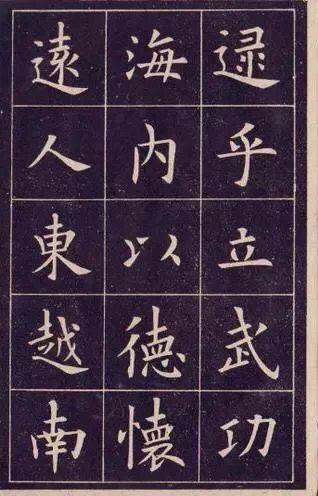 逮乎立武功
海内以德懷
遠人東越南